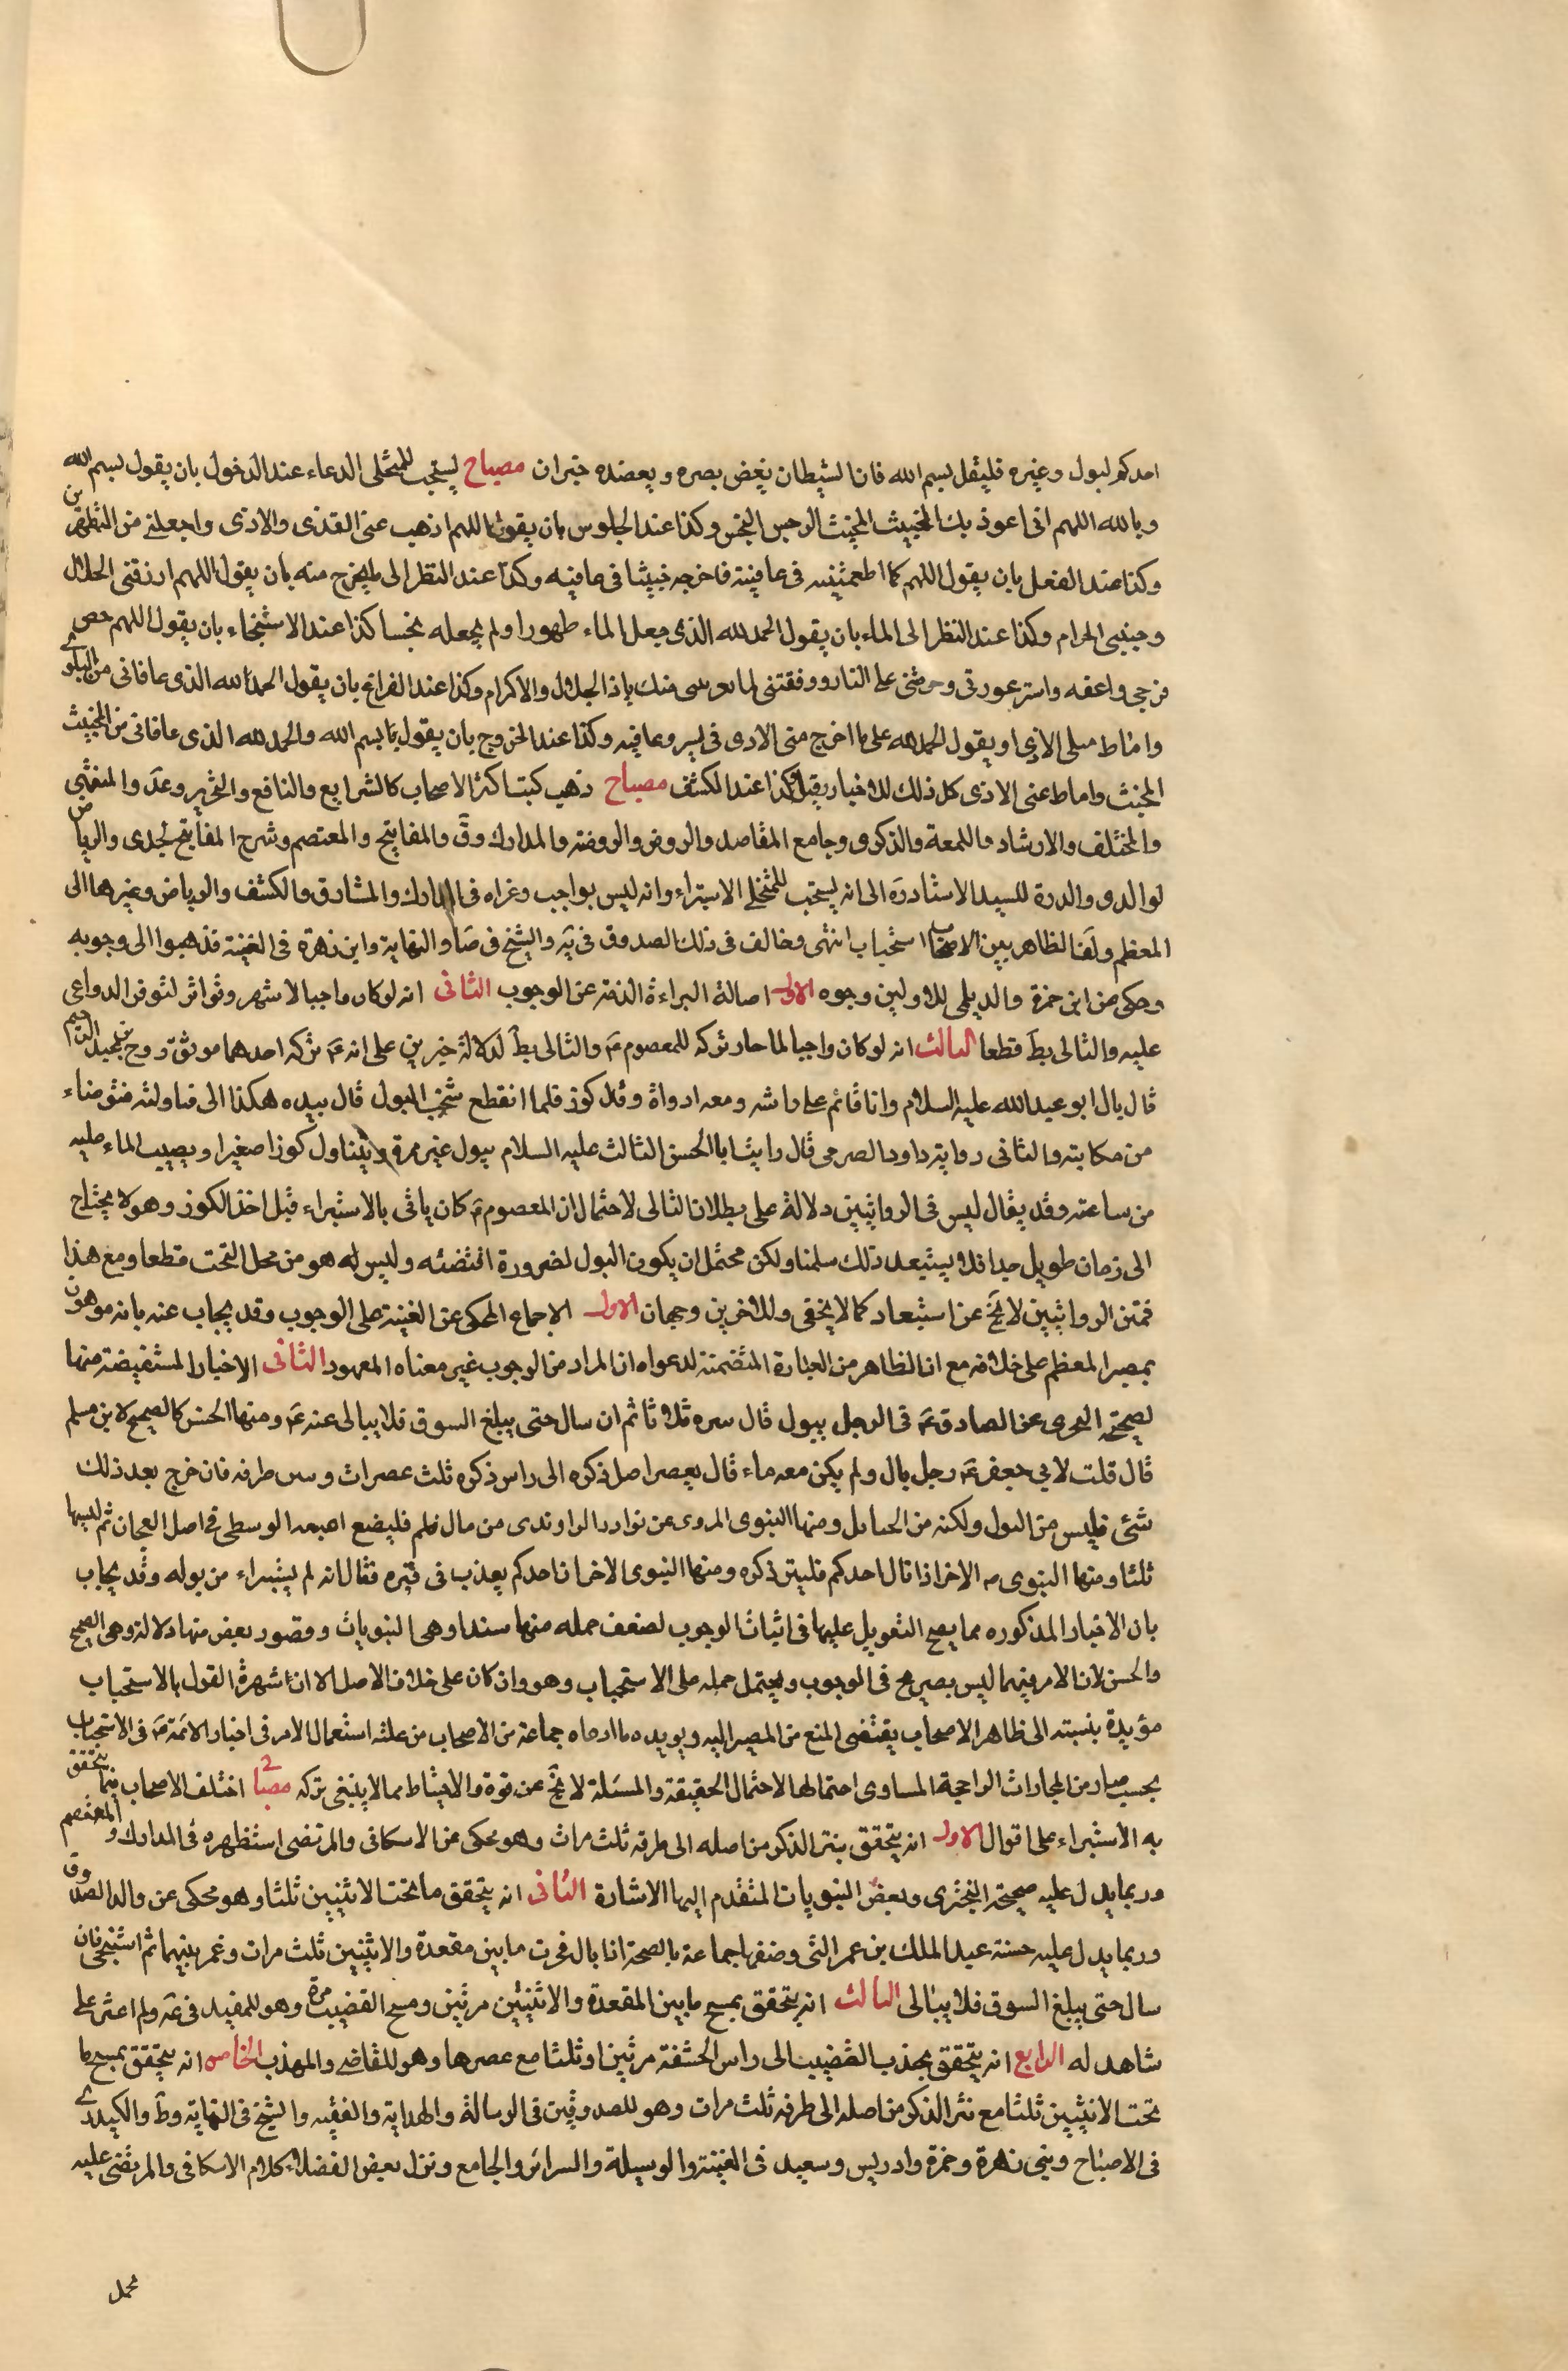 احدكم لبول وغيره فليقل بسم الله فان الشيطان يغض بصره ويعضده خبران مصباح يستحب للمتخلى الدعاء عند الدخول بان يقول بسم الله
وبالله اللهم انى اعوذ بك الخبيث المخبث الرجس النجس وكذا عند الجلوس بان يقول اللهم اذهب عنى القذى والاذى واجعلنى من المتطهرين
وكذا عند الفعل بان يقول اللهم كما اطعمتنيه فى عافية فاخرجه خبيثا فى عافيه وكذا عند النظر الى ما يخرج منه بان يقول اللهم ارزقنى الحلال
وجنبنى الحرام وكذا عند النظر الى الماء بان يقول الحمد لله الذى جعل الماء طهورا ولم يجعله نجسا كذا عند الاستنجاء بان يقول اللهم حصن
فرجى واعفه واستر عورتى وحرمنى على النار ووفقنى لما منك ياذا الجلال والاكرام وكذا عند الفراغ بان يقول الحمد لله الذى عافانى من البلوى
واماط عنى الاذى او يقول الحمد لله على ما اخرج منى الاذى فى يسر وعافيه وكذا عند الخروج بان يقول بسم الله والحمد لله الذى عافانى من الخبيث
المخبث واماط عنى الاذى كل ذلك للاخبار وكذا عند الكشف مصباح ذهب كتب اكثر الاصحاب كالشرايع والنافع والتحرير وعد والمنتهى
والمختلف والارشاد واللمعة والذكرى وجامع المقاصد والروض والروضه والمدارك وق والمفاتيح والمعتصم وشرح المفاتيح لجدى والرياض
لوالدى والدرة للسيد الاستاد ره الى انه يستحب للمتخلى الاستبراء وانه ليس بواجب وعزاه فى المدارك والمشارق والكشف والرياض وغيرها الى
المعظم ولنا الظاهر بين الاصحاب استحباب انتهى وخالف فى ذلك الصدوق فى يه والشيخ فى صا والنهاية وابن زهرة فى الغنية فذهبوا الى وجوبه
وحكى عن ابن حمزة والديلمى للاولين وجوه الاول اصالة البراءة الذمة عن الوجوب الثانى انه لو كان واجبا لاشهر وتواتر لتوفر الدواعى
عليه والتالى بط قطعا الثالث انه لو كان واجبا لما جاز تركه للمعصوم ع والتالى بط لدلالة خبرين على انه ع تركه احدهما موثق روح بن عبد الرحيم
قال بال ابو عبد الله عليه السلام وانا قائم على راسه ومعه اداوة وقال كوز فلما انقطع شخب البول قال بيده هكذا الى فناولته فتوضاء
من مكانه والثانى رواية داود الصرمى قال رايت ابا الحسن الثالث عليه السلام يبول غير مرة ويتناول كوزا صغيرا ويصيب الماء عليه
من ساعته وقد يقال ليس فى الروايتين دلالة على بطلان التالى لاحتمال ان المعصوم ع كان ياتى بالاستبراء قبل اخذ الكوز وهو لا يحتاج
الى زمان طويل جدا فلا يستبعد ذلك سلمنا ولكن محتمل ان يكون البول لضرورة اقتضته وليس له هو من محل البحث قطعا ومع هذا
فمتن الروايتين لا يخ عن استبعاد كما لا يخفى وللاخرين وجهان الاول الاجماع المحكى عن الغنية على الوجوب وقد يجاب عنه بانه موهون
بمصير المعظم على خلافه مع ان الظاهر من العبارة المتضمنة لدعواه ان المراد من الوجوب غير معناه المعهود الثانى الاخبار المستفيضة منها
لصحيحة البحترى عن الصادق ع فى الرجل يبول قال ينتره ثلاثا ثم ان سال حتى يبلغ السوق فلا يبالى عنه ع ومنها الحسن كالصحيح لابن مسلم
قال قلت لابي جعفر ع رجل بال ولم يكن معه ماء قال يعصر اصل ذكره الى راس ذكره ثلث عصرات وينتر طرفه فان خرج بعد ذلك
شئ فليس من البول ولكنه من الحبائل ومنها النبوى المروى عن نوادر الراوندى من بال فليضع اصبعه الوسطى فى اصل العجان ثم ليسلها
ثلثا ومنها النبوى الاخر اذا بال احدكم فلينتر ذكره ومنها النبوى الاخر ان احدكم يعذب فى قبره فقال انه لم يستبراء من بوله وقد يجاب
بان الاخبار المذكوره مما يصح التعويل عليها فى اثبات الوجوب لضعف جمله منها سندا وهى النبويات وقصور بعض منها دلالة وهى الصحيح
والحسن لان الامر فيهما ليس بصريح فى الوجوب ويحتمل حمله على الاستحباب وهو وان كان على خلاف الاصل الا ان شهرة القول بالاستحباب
مؤيدة بنسبته الى ظاهر الاصحاب يقتضى المنع من المصير اليه ويويده ما ادعاه جماعة من الاصحاب من غلبة استعمال الامر فى اخبار الائمة ع فى الاستحباب
بحيث صار من المجازات الراجحة المساوى احتمالها لاحتمال الحقيقة والمسئلة لا يخ عن قوة والاحتياط مما لا ينبغى تركه مصباح اختلف الاصحاب فيما يتحقق
به الاستبراء على اقوال الاول انه يتحقق بنتر الذكر من اصله الى طرفه ثلث مرات وهو محكى عن الاسكافى والمرتضى استظهره فى المدارك والمعتصم
وربما يدل عليه صحيحة البخترى وبعض النبويات المتقدم اليها الاشارة الثانى انه يتحقق ما تحت الانثيين ثلثا وهو محكى عن والد الصدوق
وربما يدل عليه حسنة عبد الملك بن عمر التى وصفها جماعة بالصحة اذا بال فخرت ما بين مقعدة والانثيين ثلث مرات وغمز بينهما ثم استنجى فان
سال حتى يبلغ السوق فلا يبالى الثالث انه يتحقق بمسح ما بين المقعدة والانثيين مرتين ومسح القضيب مرة وهو للمفيد فى عه ولم اعثر على
شاهد له الرابع انه يتحقق بجذب القضيب الى راس الحشفة مرتين او ثلثا مع عصرها وهو للقاضى والمهذب الخامس انه يتحقق بمسح ما
تحت الانثيين ثلثا مع نتر الذكر من اصله الى طرفه ثلث مرات وهو للصدوقين فى الرسالة والهداية والفقيه والشيخ فى النهاية وط والكيدرى
فى الاصباح وبنى زهرة وحمزة وادريس وسعيد فى الغنية والوسيلة والسرائر والجامع ونزل بعض الفضلاء كلام الاسكافى والمرتضى عليه
محمل